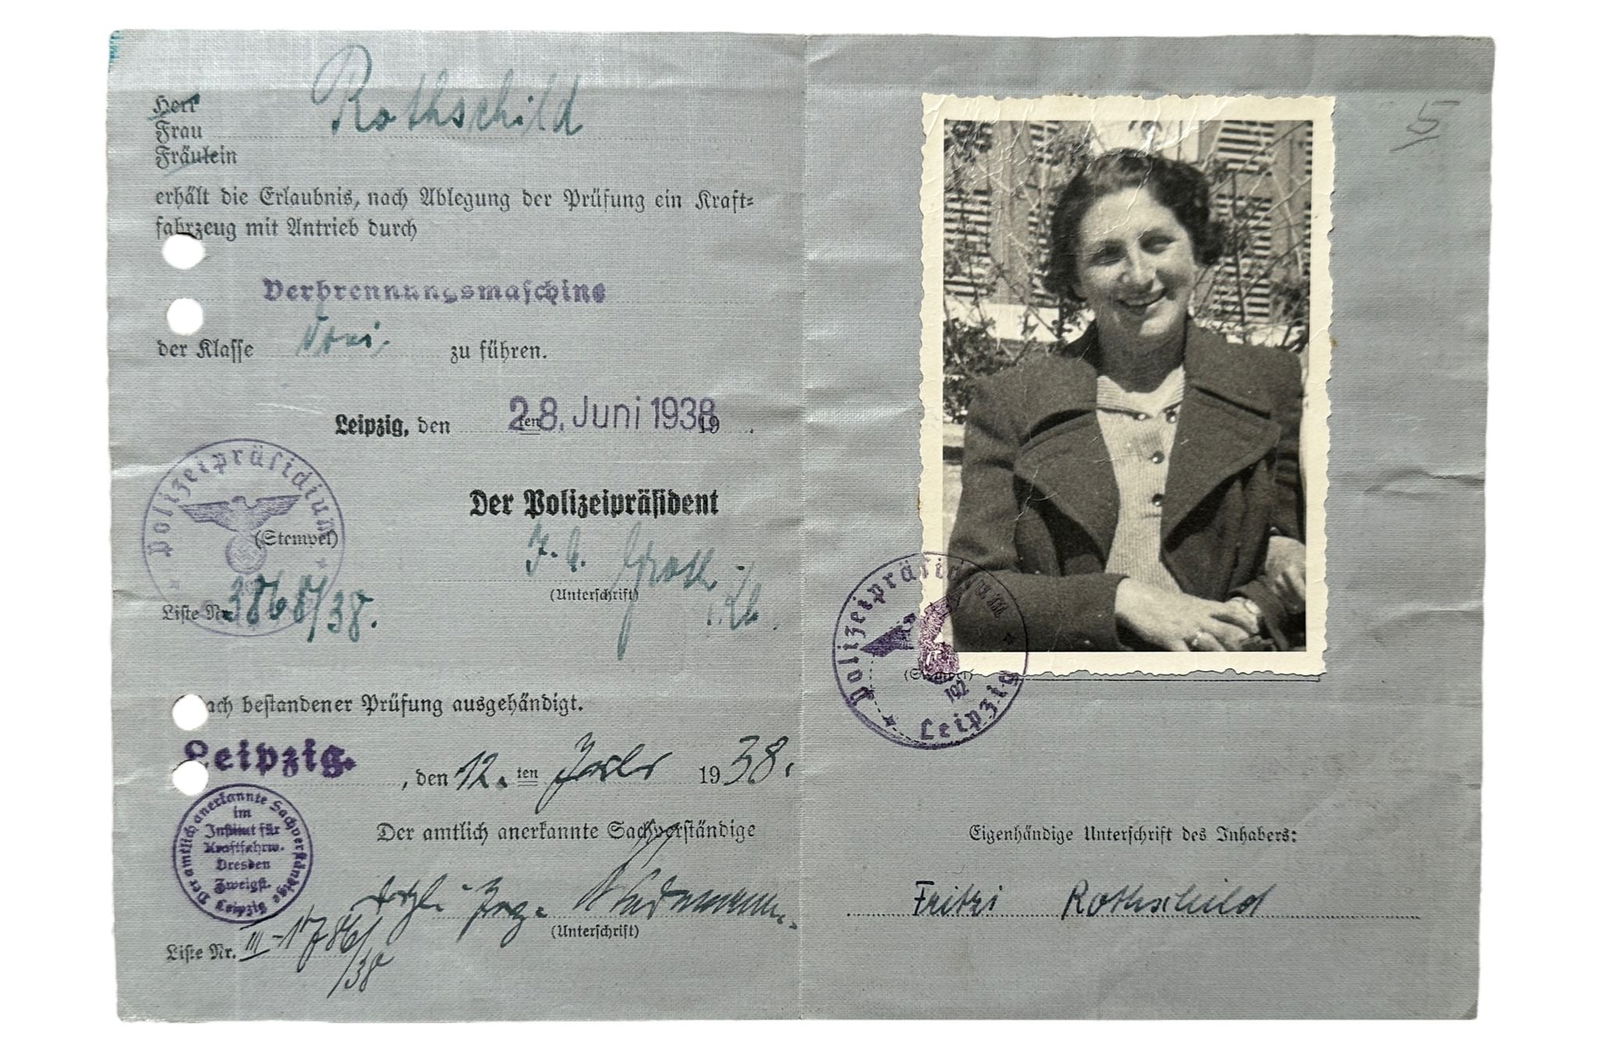 Rothschild
Herr
Frau
Fräulein
erhält die Erlaubnis, nach Ablegung der Prüfung ein Kraft=
fahrzeug mit Antrieb durch
Verbrennungsmaschine
der Klasse Drei zu führen.
Leipzig, den 28. Juni 1938 ten 19
Der Polizeipräsident
Polizeipräsidium
(Stempel)
J. A.
(Unterschrift)
Liste Nr. /38.
ach bestandener Prüfung ausgehändigt.
Leipzig.
, den 12. ten Juli 1938.
Der amtlich anerkannte Sachverständige
Der amtlich anerkannte Sachverständige
im
Institut für
Kraftfahrw.
Dresden
Zweigst.
Leipzig
Dipl. Ing.
(Unterschrift)
Liste Nr. III-1786/
/38
5
Polizeipräsidium
(Stempel)
192
Leipzig
Eigenhändige Unterschrift des Inhabers:
Fritzi Rothschild